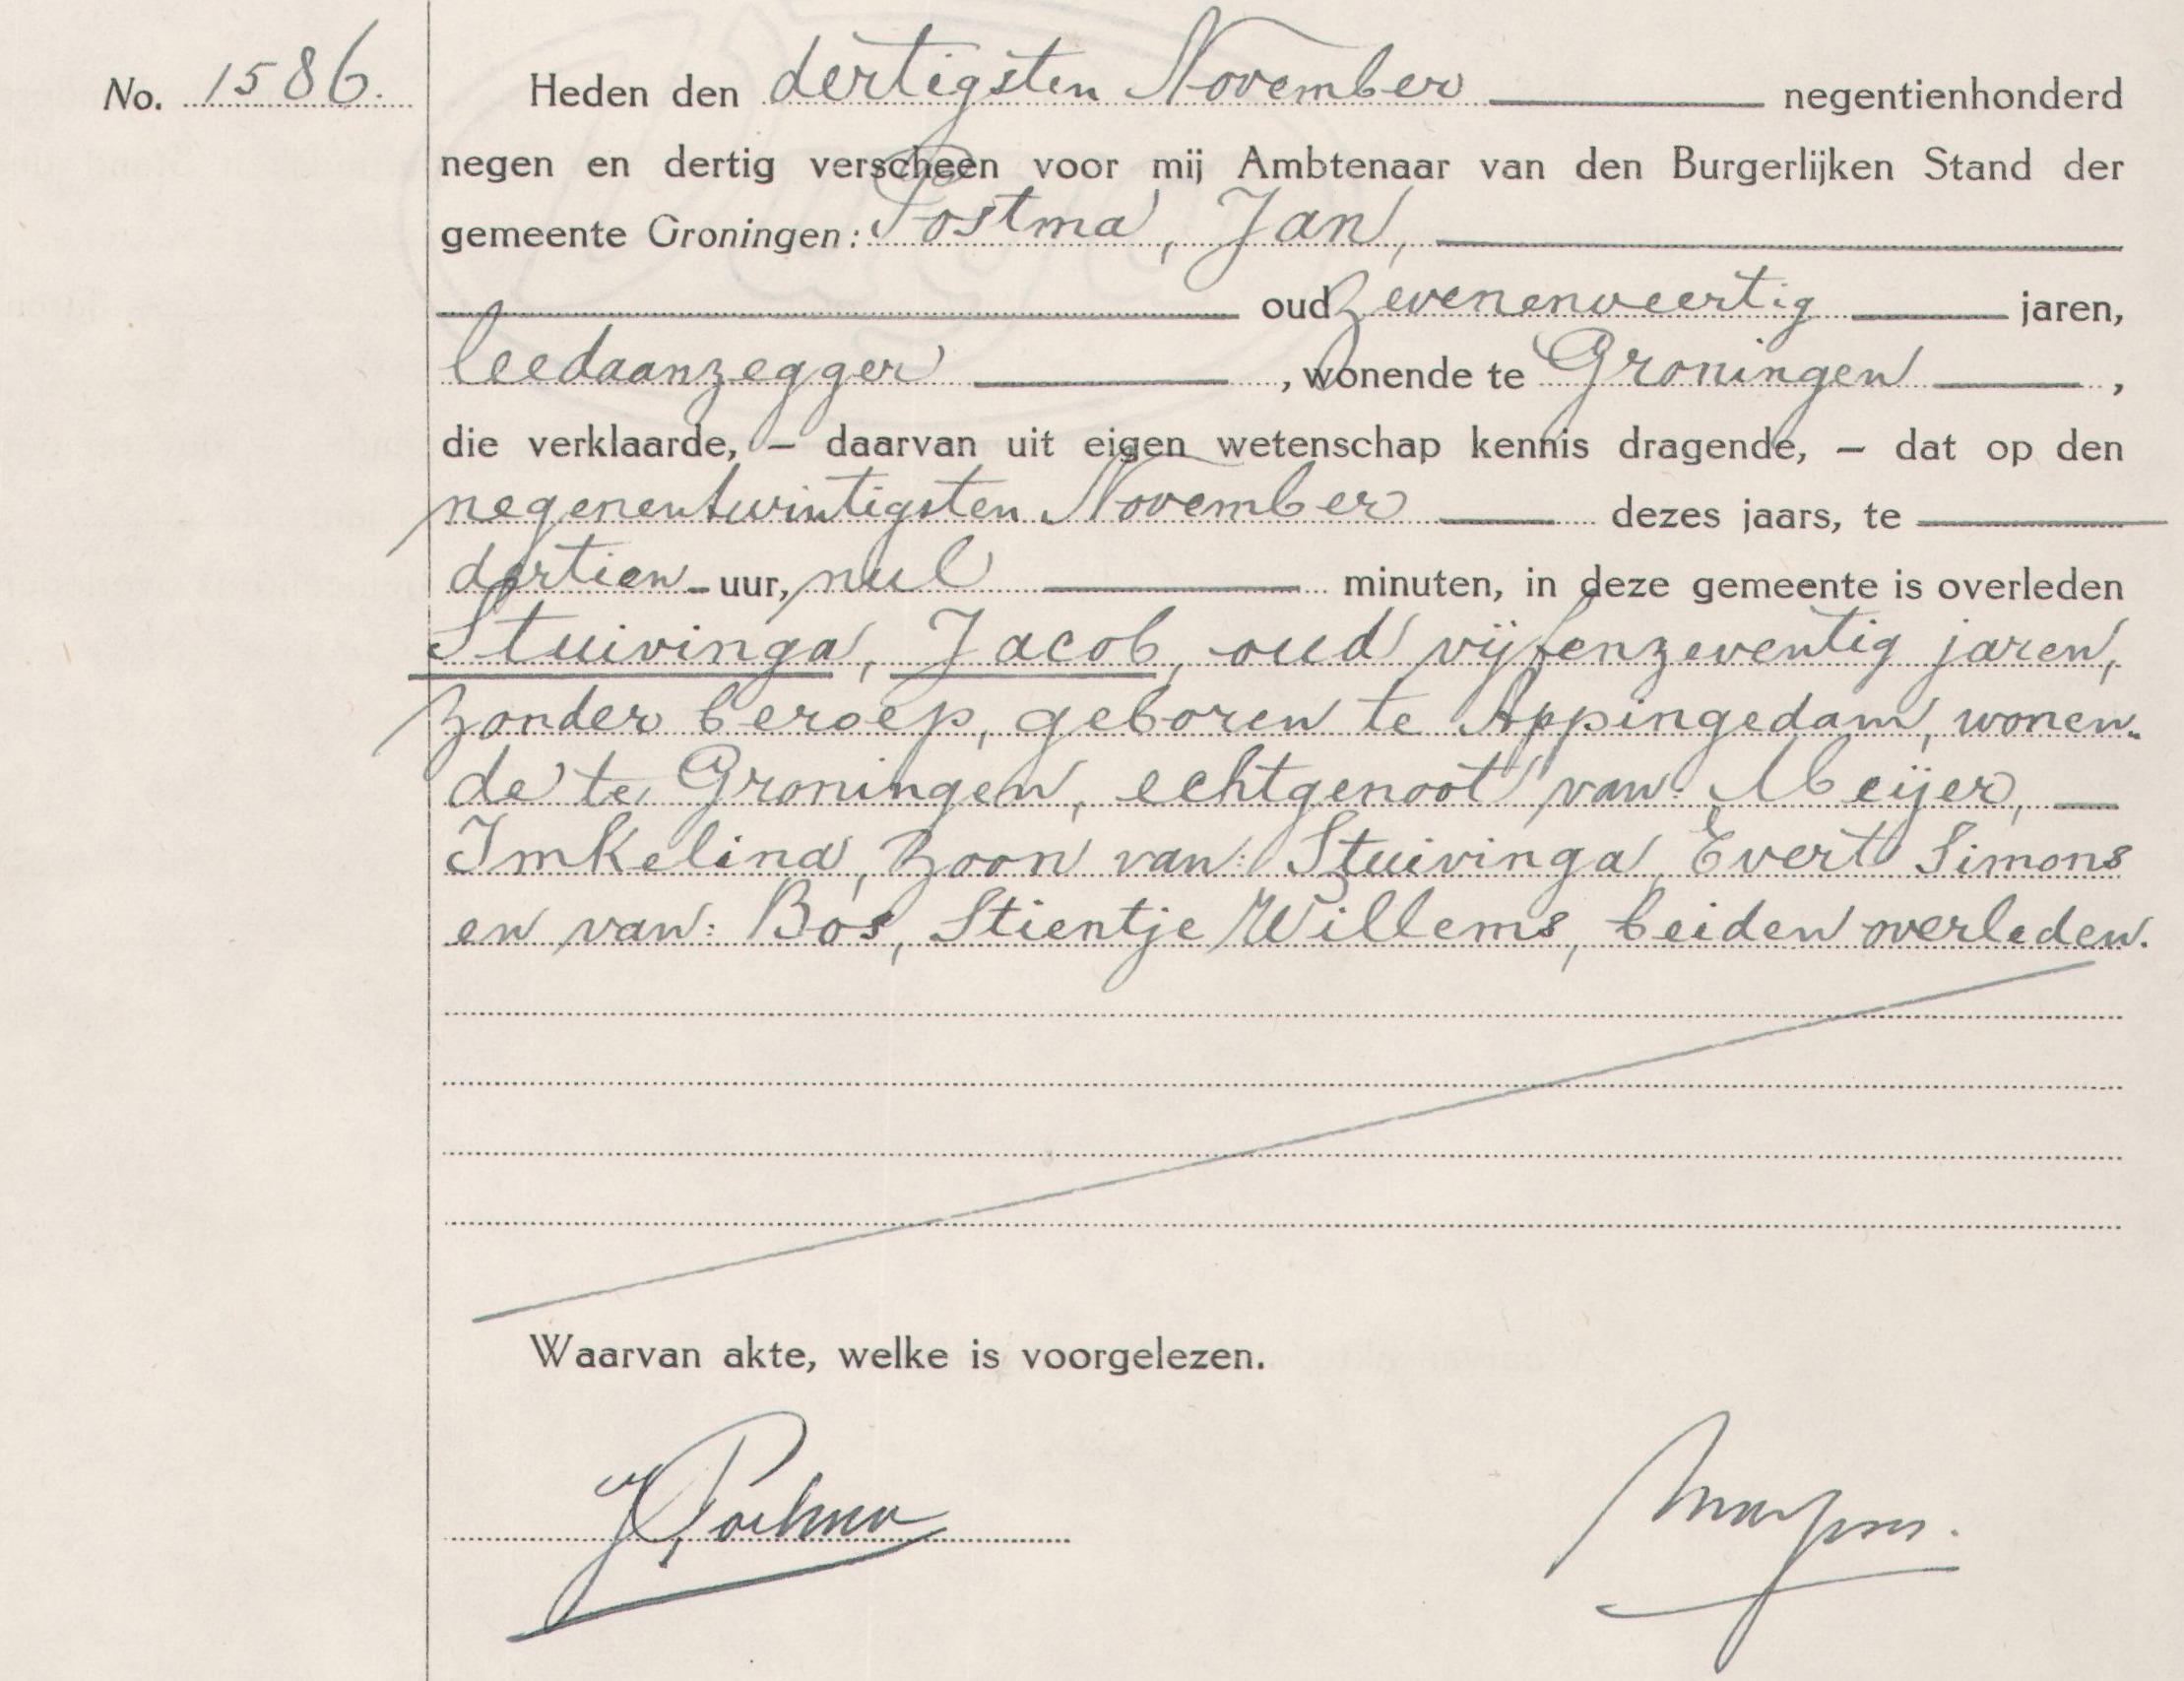 No. 1586.
Heden den dertigsten November negentienhonderd
negen en dertig verscheen voor mij Ambtenaar van den Burgerlijken Stand der
gemeente Groningen: Postma, Jan,
oud zevenenveertig jaren,
leedaanzegger, wonende te Groningen,
die verklaarde, – daarvan uit eigen wetenschap kennis dragende, – dat op den
negenentwintigsten November dezes jaars, te
dertien uur, nul minuten, in deze gemeente is overleden
Stuivinga, Jacob, oud vijfenzeventig jaren,
zonder beroep, geboren te Appingedam, wonen-
de te Groningen, echtgenoot van: Meijer,
Imkelina, zoon van: Stuivinga, Evert Simons
en van: Bos, Stientje Willems, beiden overleden.
Waarvan akte, welke is voorgelezen.
J Postma